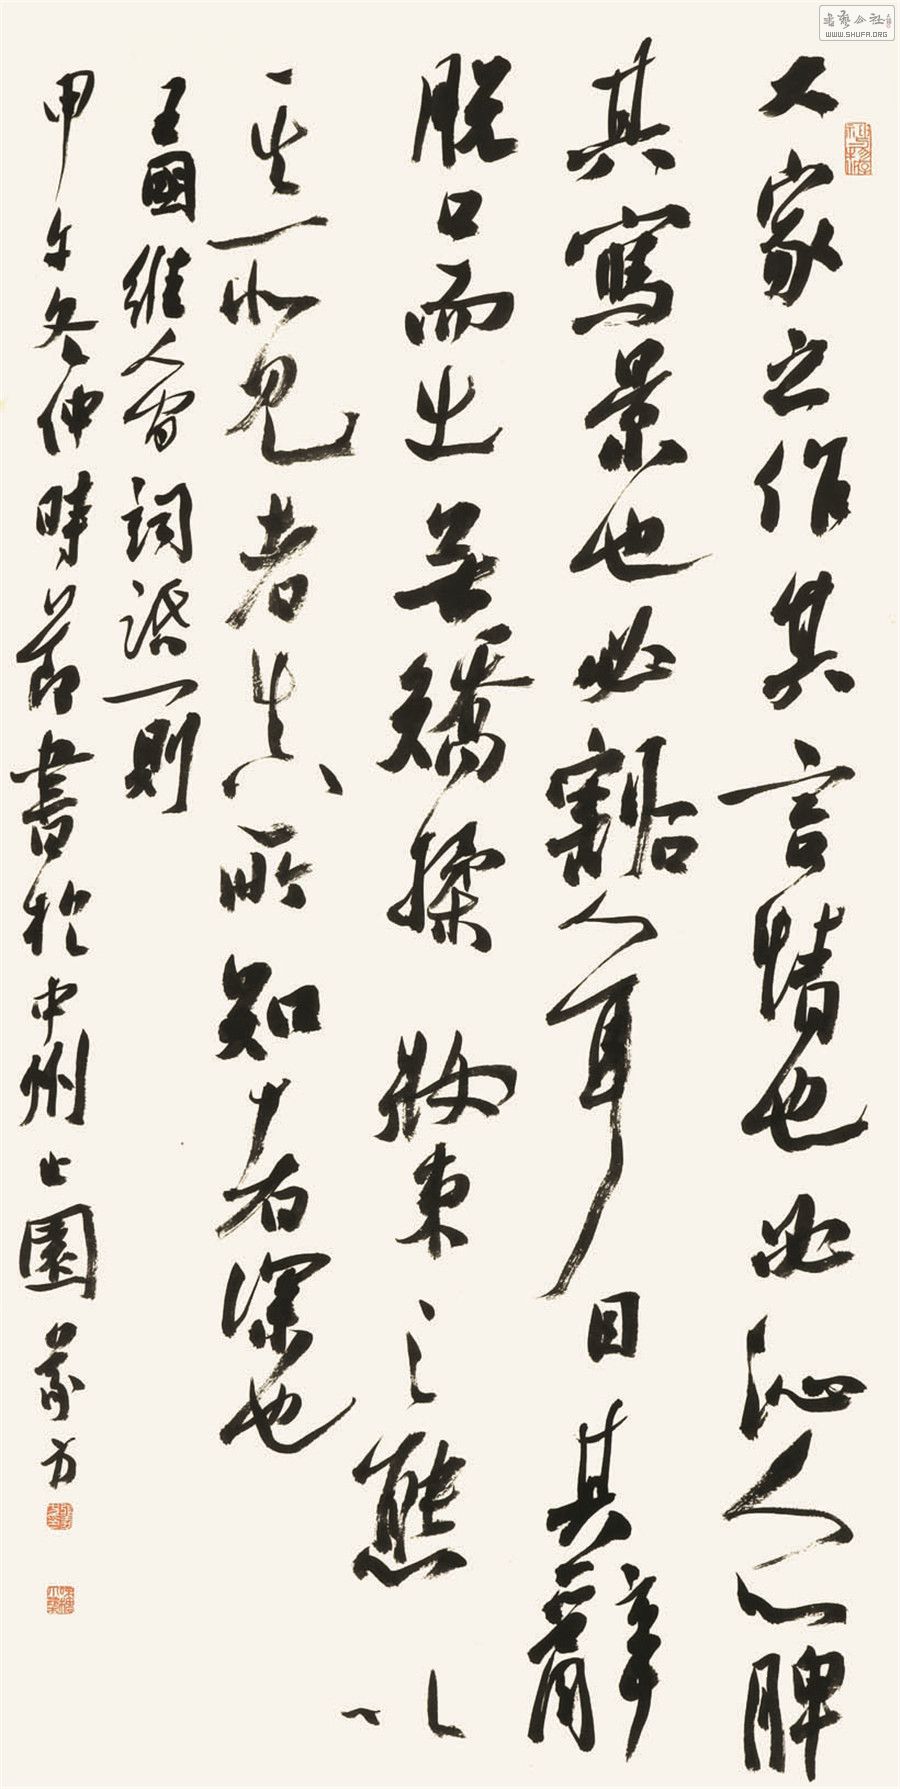 書藝公社
WWW.SHUFA.ORG
大家之作其言情也必沁人心脾
其寫景也必豁人耳目其辭
脫口而出無矯揉妝束之態以
其所見者真所知者深也
王國維人間詞話一則
甲午冬仲時節書於中州止園